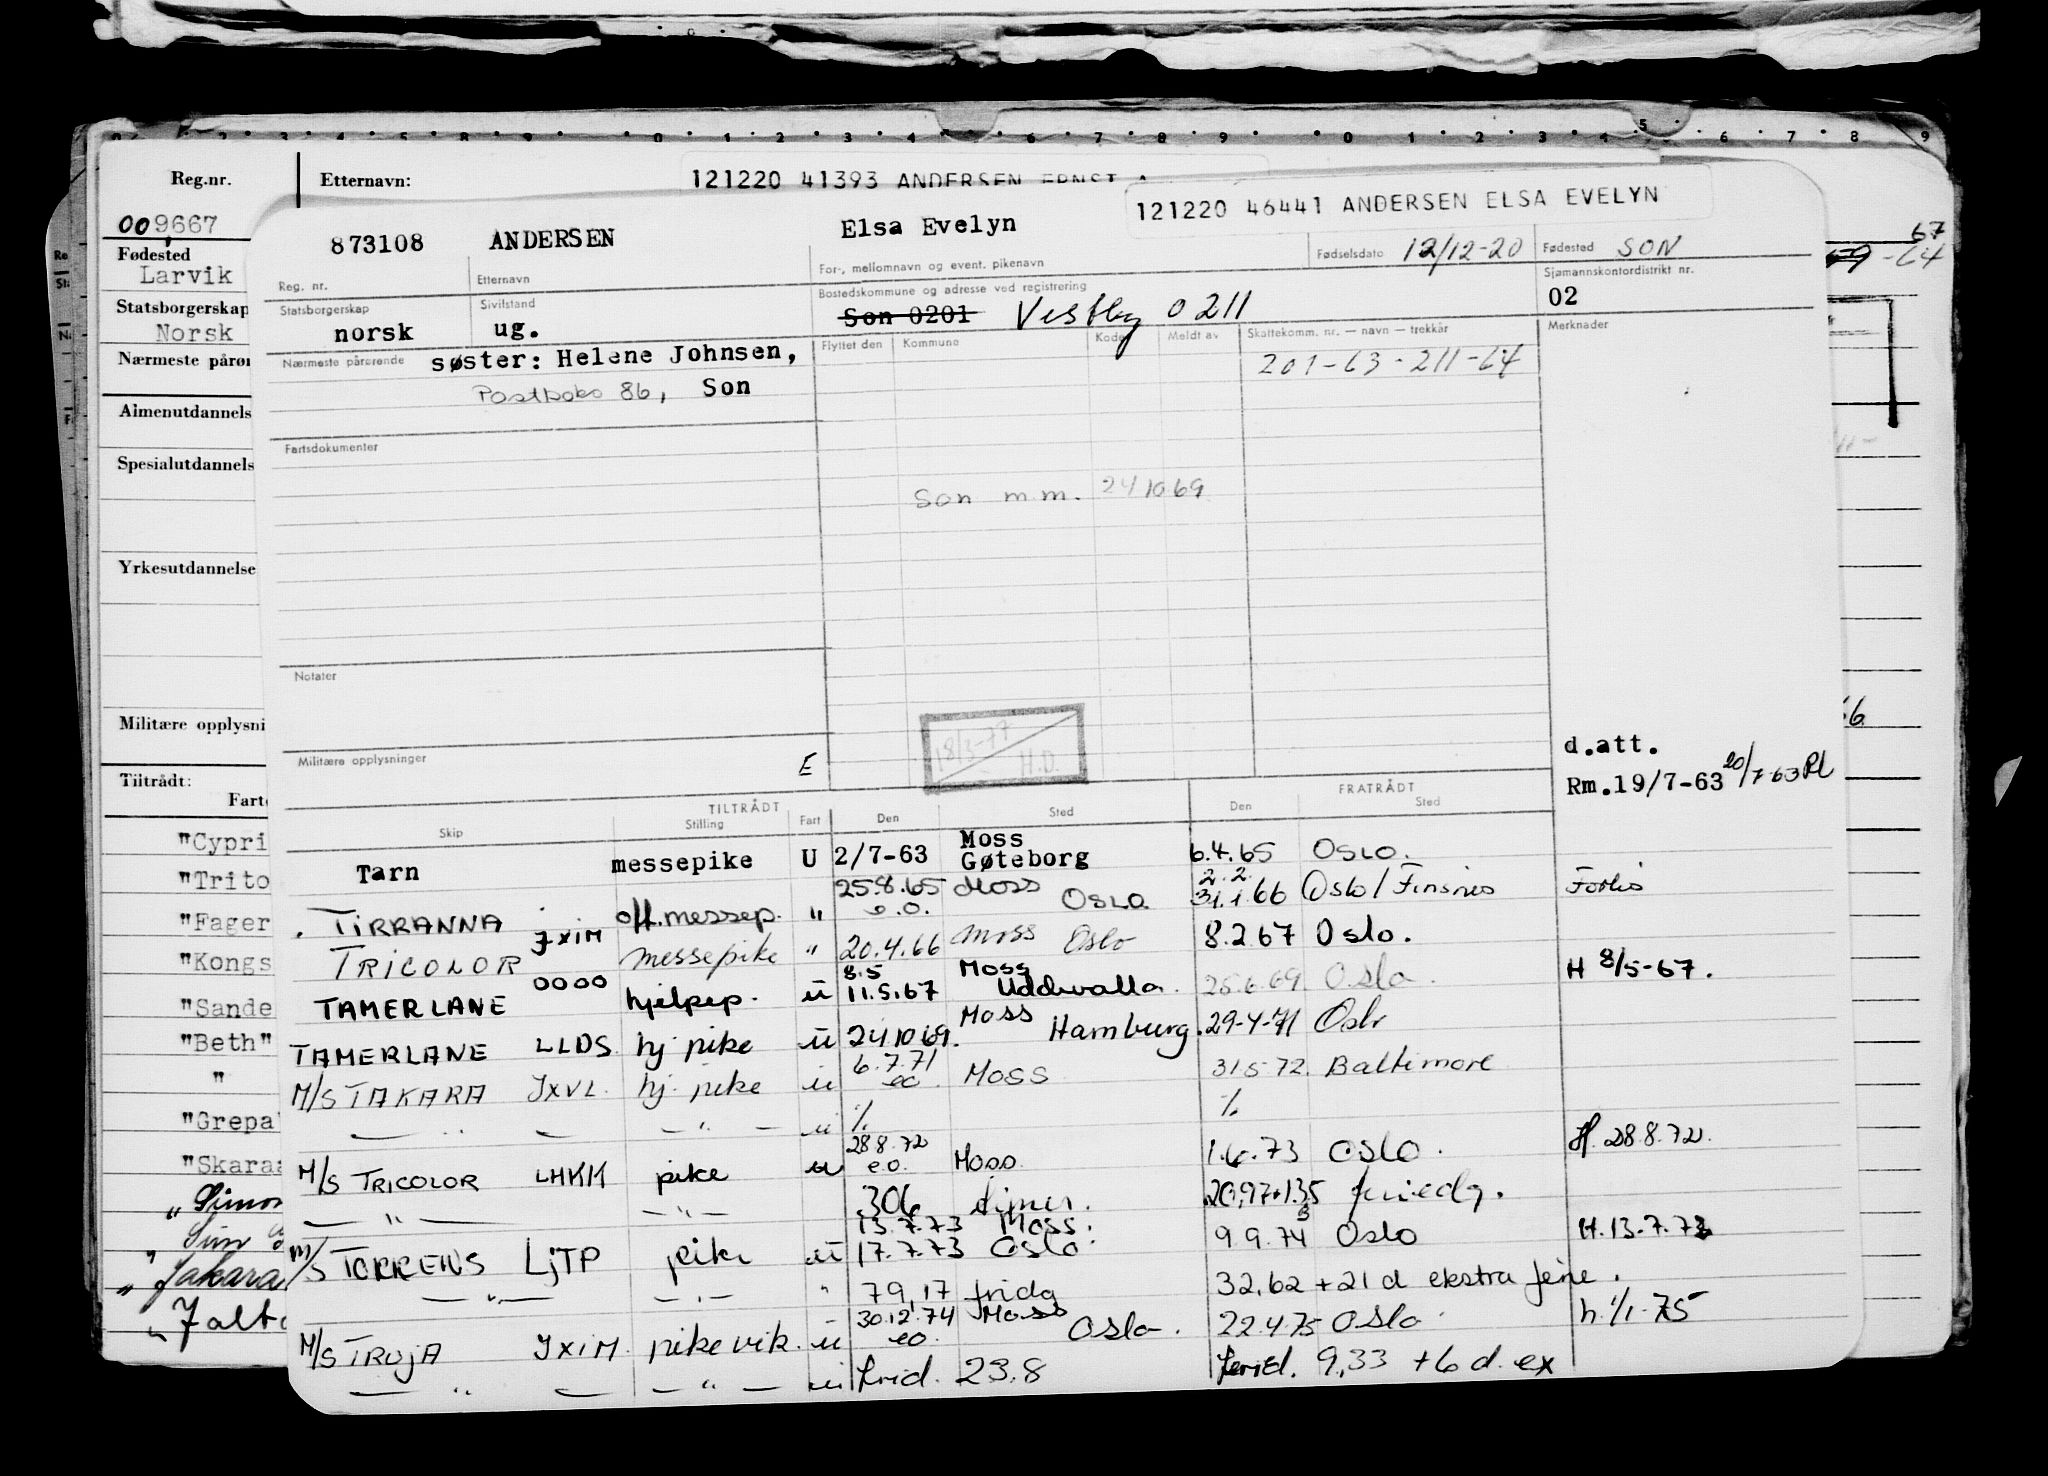 Reg.nr.
Etternavn:
121220 41393 ANDERSEN ERNST
121220 46441 ANDERSEN ELSA EVELYN
009667
873108 ANDERSEN Elsa Evelyn
Fødselsdato 12/12-20 Fødested SON
67
-64
Fødested
Larvik
Reg. nr. Etternavn For-, mellomnavn og event. pikenavn
Statsborgerskap
Norsk
Statsborgerskap Sivilstand Bostedskommune og adresse ved registrering Sjømannskontordistrikt nr.
norsk ug. Son 0201 Vestby 0211 02
Nærmeste pårørende søster: Helene Johnsen, Flyttet den Kommune Kode Meldt av Skattekomm. nr. — navn — trekkår Merknader
201-63-211-64
Postboks 86, Son
Nærmeste påror
Almenutdannels
Spesialutdannels
Yrkesutdannelse
Militære opplysni
Tiltrådt:
Farto
Fartsdokumenter
Son m.m. 24/10 69
Notater
18/3-77
H.D.
Militære opplysninger E
d.att.
Rm.19/7-63 20/7-63 Rl
TILTRÅDT FRATRÅDT
Skip Stilling Fart Den Sted Den Sted
Tarn messepike U 2/7-63 Moss Gøteborg 6.4.65 Oslo.
TIRRANNA off.messep. " 25.8.65 e.o. Moss Oslo 2.2. 31.1.66 Oslo/Finsnes
TRICOLOR JXIM messepike " 20.4.66 Moss Oslo 8.2.67 Oslo.
TAMERLANE 0000 hjelpep. ū 8.5 11.5.67 Moss Uddevalla. 25.6.69 Oslo. H 8/5-67.
TAMERLANE LLDS hj pike ū 24.10.69. Moss Hamburg. 29-4-71 Oslo
M/S TAKARA JXVL. hj. pike ū 6.7.71 eo. Moss 31.5.72. Baltimore
— " — — " — ū % %
M/S TRICOLOR LHKK pike u 28.8.72 e.o. Moss 1.6.73 OSLO. H. 28.8.72.
— " — — " — 306 timer. 20,97+1.35 feriedg.
M/S TORRENS LJTP pike ū 13.7.73 Moss. 17.7.73 Oslo. 9.9.74 Oslo H.13-7.73
— " — — " — " 79,17 fridg 32.62 + 21 d ekstra ferie.
M/S TROJA JXIM. pike vik. ū 30.12.74 eo. Moss Oslo. 22.4.75 Oslo h. 1/1-75
— " — — " — ū frid. 23.8 feried. 9.33 +6 d. ex
"Cypri
"Trito
"Fager
"Kongs
"Sande
"Beth"
"
"Grepa
"Skaraa
"Simon
" Sim
"Jakara
"Jalta